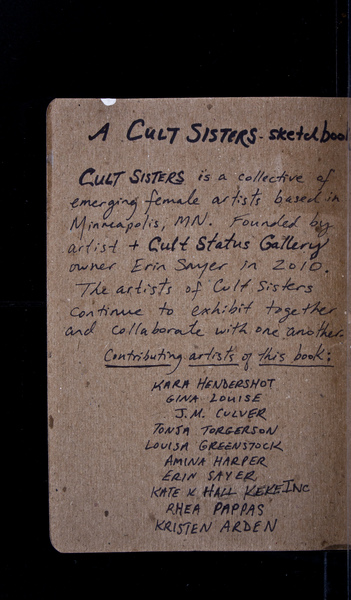 A CULT SISTERS - sketchbook
CULT SISTERS is a collective of
emerging female artists based in
Minneapolis, MN. Founded by
artist + Cult Status Gallery
owner Erin Sayer in 2010.
The artists of Cult Sisters
continue to exhibit together
and collaborate with one another.
Contributing artists of this book:
KARA HENDERSHOT
GINA LOUISE
J.M. CULVER
TONJA TORGERSON
LOUISA GREENSTOCK
AMINA HARPER
ERIN SAYER
KATE K HALL KEKEINC
RHEA PAPPAS
KRISTEN ARDEN